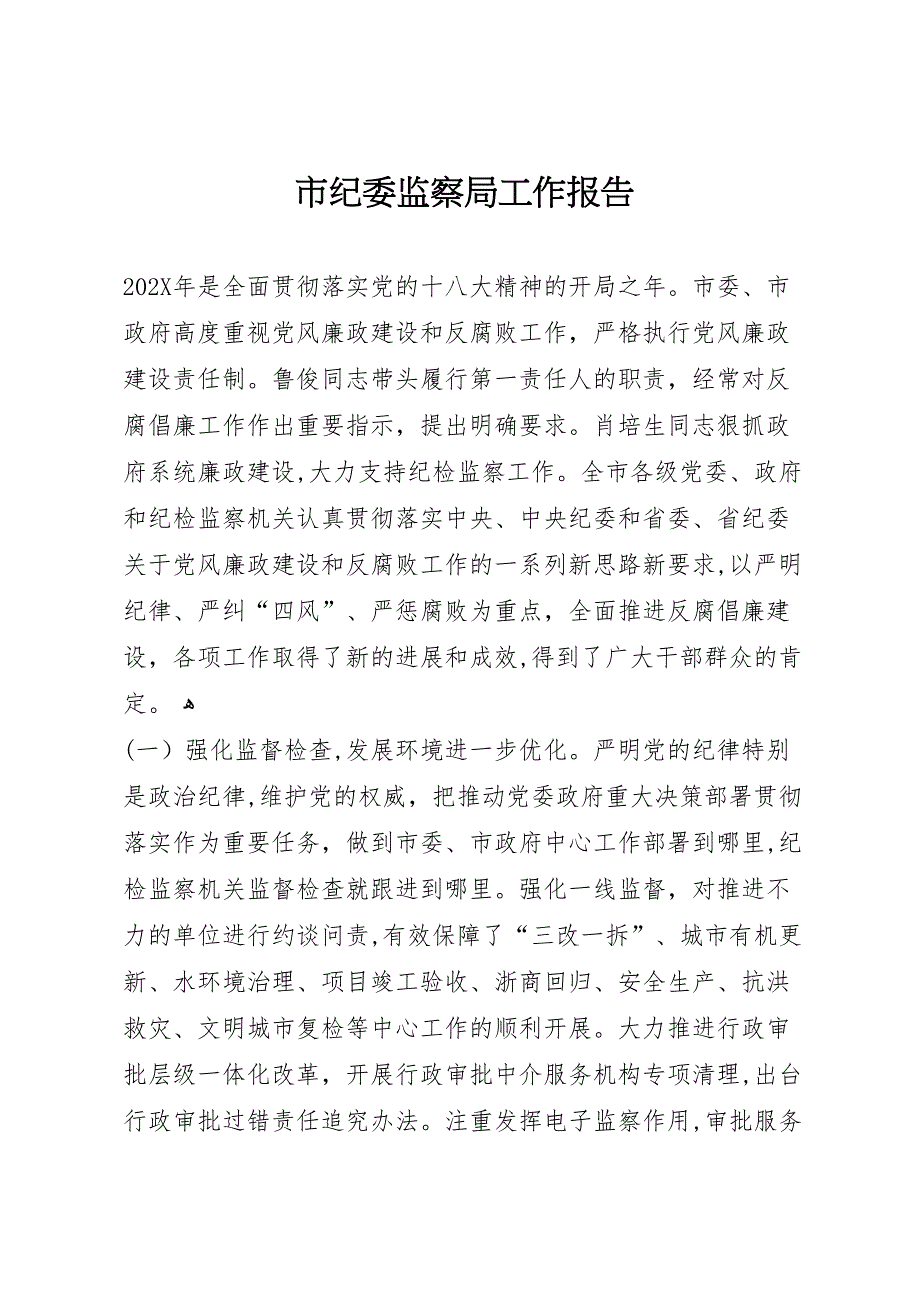 市纪委监察局工作报告
202X年是全面贯彻落实党的十八大精神的开局之年。市委、市
政府高度重视党风廉政建设和反腐败工作，严格执行党风廉政
建设责任制。鲁俊同志带头履行第一责任人的职责，经常对反
腐倡廉工作作出重要指示，提出明确要求。肖培生同志狠抓政
府系统廉政建设,大力支持纪检监察工作。全市各级党委、政府
和纪检监察机关认真贯彻落实中央、中央纪委和省委、省纪委
关于党风廉政建设和反腐败工作的一系列新思路新要求,以严明
纪律、严纠“四风”、严惩腐败为重点，全面推进反腐倡廉建
设，各项工作取得了新的进展和成效,得到了广大干部群众的肯
定。 ﻫ
(一）强化监督检查,发展环境进一步优化。严明党的纪律特别
是政治纪律,维护党的权威，把推动党委政府重大决策部署贯彻
落实作为重要任务，做到市委、市政府中心工作部署到哪里,纪
检监察机关监督检查就跟进到哪里。强化一线监督，对推进不
力的单位进行约谈问责,有效保障了“三改一拆”、城市有机更
新、水环境治理、项目竣工验收、浙商回归、安全生产、抗洪
救灾、文明城市复检等中心工作的顺利开展。大力推进行政审
批层级一体化改革，开展行政审批中介服务机构专项清理,出台
行政审批过错责任追究办法。注重发挥电子监察作用,审批服务